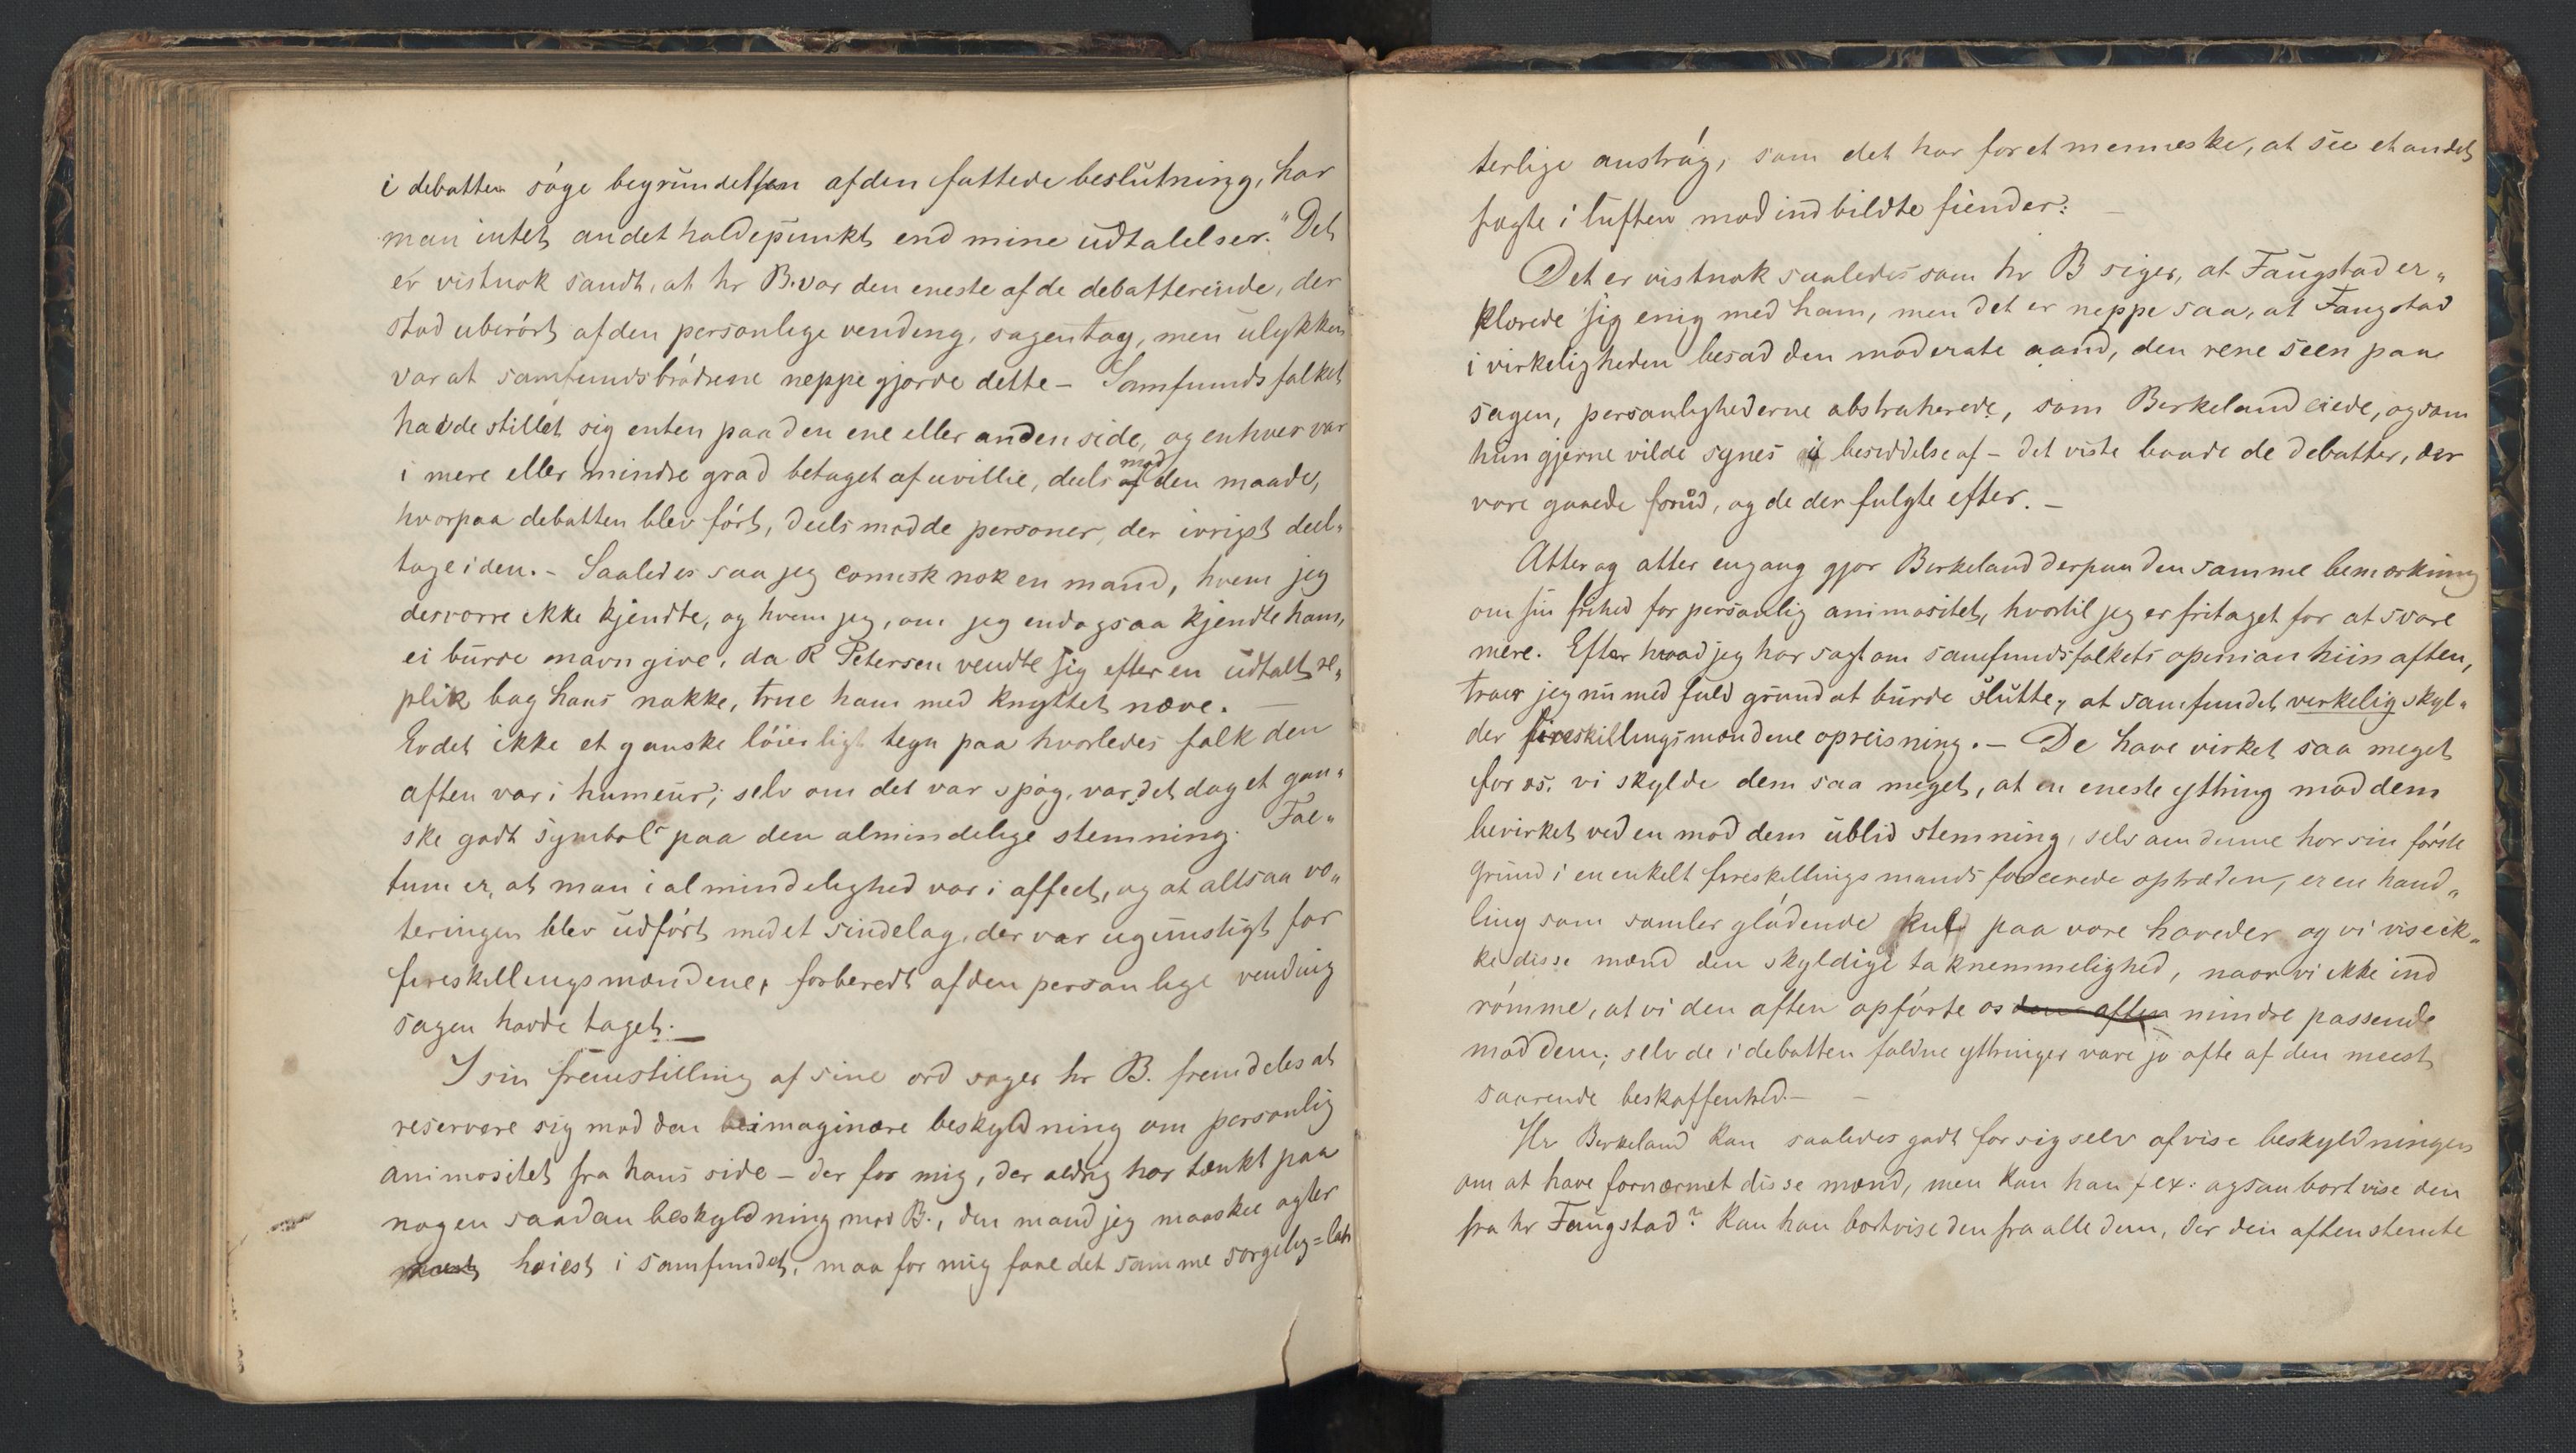 i debatten søge begrundelsen af den fattede beslutning, har
man intet andet holdepunkt end mine udtalelser." Det
er vistnok sandt, at hr B. var den eneste af de debatterende, der
stod uberørt af den personlige vending, sagen tog, men ulykken
var at samfundsbrødrene neppe gjorde dette – Samfundsfolket
havde stillet sig enten paa den ene eller anden side, og enhver var
i mere eller mindre grad betaget af uvillie, deels mod den maade,
hvorpaa debatten blev ført, deels mod de personer, der ivrigst deel„
toge i den. – Saaledes saa jeg comisk nok en mand, hvem jeg
desværre ikke kjendte, og hvem jeg, om jeg endogsaa kjendte ham,
ei burde navngive, da R Petersen vendte sig efter en udtalt re„
plik bag hans nakke, true ham med knyttet næve. —
Er det ikke et ganske løierligt tegn paa hvorledes folk den
aften var i humeur; selv om det var spøg, var det dog et gan„
ske godt symbol paa den almindelige stemning. Fac„
tum er, at man i almindelighed var i affect, og at altsaa vo„
teringen blev udført med et sindelag, der var ugunstigt for
fireskillingsmændene, forberedt af den personlige vending
sagen havde taget. —
I sin fremstilling af sine ord søger hr B. fremdeles at
reservere sig mod den imaginære beskyldning om personlig
animositet fra hans side – der for mig, der aldrig har tænkt paa
nogen saadan beskyldning mod B., den mand jeg maaskee agter
høiest i samfundet, maa for mig faae det samme sørgelig=lat
terlige anstrøg, som det har for et menneske, at see et andet
fægte i luften mod indbildte fiender. —
Det er vistnok saaledes som hr B siger, at Faugstad er„
klærede sig enig med ham, men det er neppe saa, at Faugstad
i virkeligheden besad den moderate aand, den rene seen paa
sagen, personlighederne abstraherede, som Birkeland eiede, og som
hun gjerne vilde synes i besiddelse af – det viste baade de debatter, der
vare gaaede forud, og de der fulgte efter. –
Atter og atter engang gjør Birkeland derpaa den samme bemærkning
om sin frihed for personlig animositet, hvortil jeg er fritaget for at svare
mere. Efter hvad jeg har sagt om samfundsfolkets opinion hiin aften,
troer jeg nu med fuld grund at burde slutte, at samfundet virkelig skyl„
der fireskillingsmændene opreisning. – De have virket saa meget
for os, vi skylde dem saa meget, at en eneste ytring mod dem
bevirket ved en mod dem ublid stemning, selv om denne har sin første
grund i en enkelt fireskillingsmands forcerede optræden, er en hand„
ling som samler glødende kul paa vore hoveder og vi vise ik„
ke disse mænd den skyldige taknemmelighed, naar vi ikke ind
rømme, at vi den aften opførte os den aften mindre passende
mod dem; selv de i debatten faldne ytringer vare jo ofte af den meest
saarende beskaffenhed. –
Hr Birkeland kan saaledes godt for sig selv afvise beskyldningen
om at have fornærmet disse mænd, men kan han f ex: ogsaa bortvise den
fra hr Faugstad? Kan han bortvise den fra alle dem, der den aften stemte